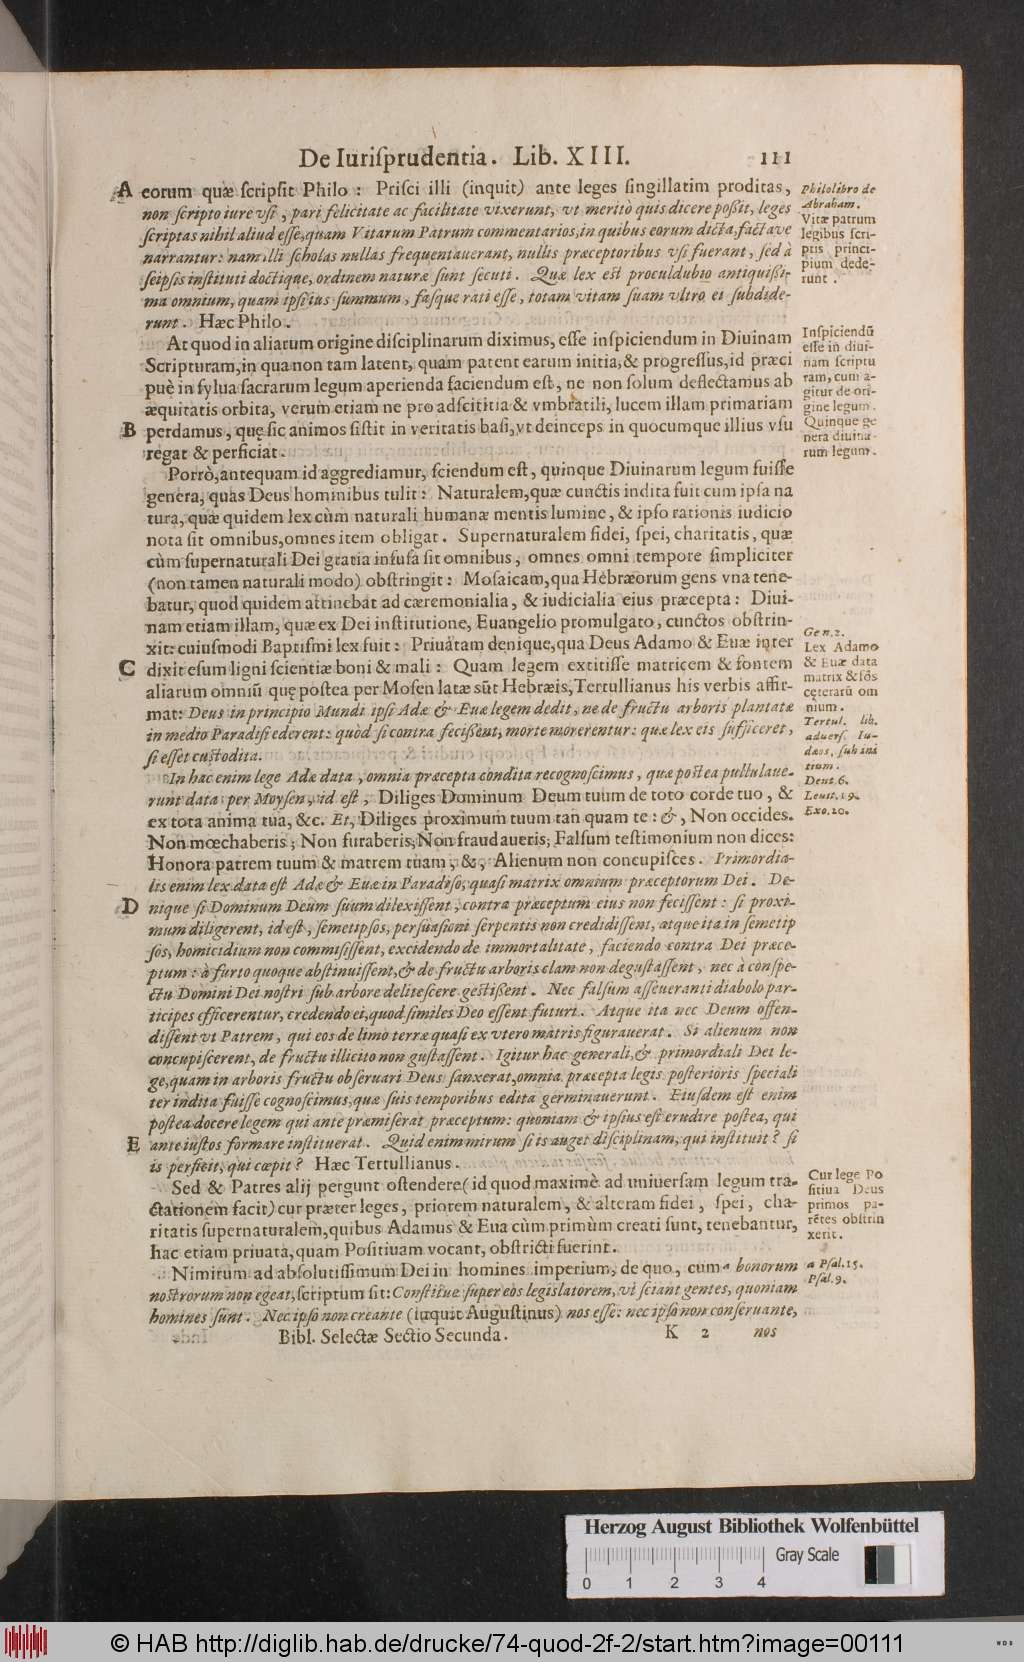 De Iurisprudentia. Lib. XIII. 111
A eorum quæ scripsit Philo: Prisci illi (inquit) ante leges singillatim proditas,
non scripto iure vsi, pari felicitate ac facilitate vixerunt, vt meritò quis dicere poßit, leges
scriptas nihil aliud esse, quam Vitarum Patrum commentarios, in quibus eorum dicta, factave
narrantur: nam illi scholas nullas frequentauerant, nullis præceptoribus vsi fuerant, sed à
seipsis instituti doctique, ordinem naturæ sunt secuti. Quæ lex est proculdubio antiquißi-
ma omnium, quam ipsi ius summum, fasque rati esse, totam vitam suam vltro ei subdide-
runt. Hæc Philo.
Philo libro de
Abraham.
Vitæ patrum
legibus scri-
ptis princi-
pium dede-
runt.
At quod in aliarum origine disciplinarum diximus, esse inspiciendum in Diuinam
Scripturam, in qua non tam latent, quam patent earum initia, & progressus, id præci
puè in sylua sacrarum legum aperienda faciendum est, ne non solum deflectamus ab
æquitatis orbita, verum etiam ne pro adscititia & vmbratili, lucem illam primariam
B perdamus, quę sic animos sistit in veritatis basi, vt deinceps in quocumque illius vsu
regat & perficiat.
Inspiciendũ
esse in diui-
nam scriptu
ram, cum a-
gitur de ori-
gine legum.
Quinque ge
nera diuina-
rum legum.
Porrò, antequam id aggrediamur, sciendum est, quinque Diuinarum legum fuisse
genera, quas Deus hominibus tulit: Naturalem, quæ cunctis indita fuit cum ipsa na
tura, quæ quidem lex cùm naturali humanæ mentis lumine, & ipso rationis iudicio
nota sit omnibus, omnes item obligat. Supernaturalem fidei, spei, charitatis, quæ
cùm supernaturali Dei gratia infusa sit omnibus, omnes omni tempore simpliciter
(non tamen naturali modo) obstringit: Mosaicam, qua Hebræorum gens vna tene-
batur, quod quidem attinebat ad cæremonialia, & iudicialia eius præcepta: Diui-
nam etiam illam, quæ ex Dei institutione, Euangelio promulgato, cunctos obstrin-
xit: cuiusmodi Baptismi lex fuit: Priuatam denique, qua Deus Adamo & Euæ inter
C dixit esum ligni scientiæ boni & mali: Quam legem extitisse matricem & fontem
aliarum omniũ quę postea per Mosen latæ sũt Hebræis, Tertullianus his verbis affir-
mat: Deus in principio Mundi ipsi Adæ & Euæ legem dedit, ne de fructu arboris plantatæ
in medio Paradisi ederent: quòd si contra fecißent, morte morerentur: quæ lex eis sufficeret,
si esset custodita.
Gen. 2.
Lex Adamo
& Euæ data
matrix & fõs
cęterarũ om
nium.
Tertul. lib.
aduers. Iu-
dæos, sub ini
tium.
Deut. 6.
Leuit. 19.
Exo. 20.
In hac enim lege Adæ data, omnia præcepta condita recognoscimus, quæ postea pullulaue-
runt data per Moysen, id est, Diliges Dominum Deum tuum de toto corde tuo, &
ex tota anima tua, &c. Et, Diliges proximum tuum tan quam te: &, Non occides.
Non mœchaberis; Non furaberis; Non fraudaueris; Falsum testimonium non dices:
Honora patrem tuum & matrem tuam, &, Alienum non concupisces. Primordia-
lis enim lex data est Adæ & Euæ in Paradiso, quasi matrix omnium præceptorum Dei. De-
D nique si Dominum Deum suum dilexissent, contra præceptum eius non fecissent: si proxi-
mum diligerent, id est, semetipsos, persuasioni serpentis non credidissent, atque ita in semetip
sos, homicidium non commisissent, excidendo de immortalitate, faciendo contra Dei præce-
ptum: à furto quoque abstinuissent, & de fructu arboris clam non degustassent, nec à conspe-
ctu Domini Dei nostri sub arbore delitescere gestißent. Nec falsum asseueranti diabolo par-
ticipes efficerentur, credendo ei, quod similes Deo essent futuri. Atque ita nec Deum offen-
dissent vt Patrem, qui eos de limo terræ quasi ex vtero matris figurauerat. Si alienum non
concupiscerent, de fructu illicito non gustassent. Igitur hac generali, & primordiali Dei le-
ge, quam in arboris fructu obseruari Deus sanxerat, omnia præcepta legis posterioris speciali
ter indita fuisse cognoscimus, quæ suis temporibus edita germinauerunt. Eiusdem est enim
postea docere legem qui ante præmiserat præceptum: quoniam & ipsius est erudire postea, qui
E ante iustos formare instituerat. Quid enim mirum si is auget disciplinam, qui instituit? si
is perficit, qui cœpit? Hæc Tertullianus.
Sed & Patres alij pergunt ostendere (id quod maximè ad uniuersam legum tra-
ctationem facit) cur præter leges, priorem naturalem, & alteram fidei, spei, cha-
ritatis supernaturalem, quibus Adamus & Eua cùm primùm creati sunt, tenebantur,
hac etiam priuata, quam Positiuam vocant, obstricti fuerint.
Cur lege Po
sitiua Deus
primos pa-
rẽtes obstrin
xerit.
Nimirum ad absolutissimum Dei in homines imperium, de quo, cum a bonorum
nostrorum non egeat, scriptum sit: Constitue super eos legislatorem, vt sciant gentes, quoniam
homines sunt. Nec ipso non creante (inquit Augustinus) nos esse: nec ipso non conseruante,
a Psal. 15.
Psal. 9.
Bibl. Selectæ Sectio Secunda. K 2 nos
Herzog August Bibliothek Wolfenbüttel
0 1 2 3 4 Gray Scale
© HAB http://diglib.hab.de/drucke/74-quod-2f-2/start.htm?image=00111